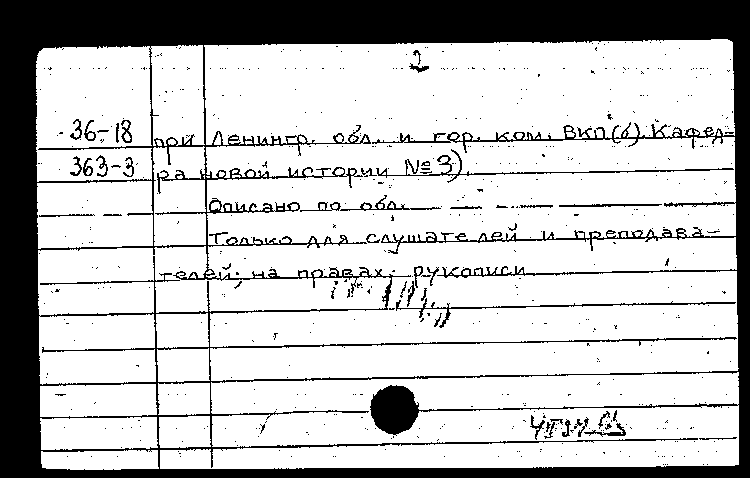 2
36-18 при Ленингр. обл. и гор. ком. ВКП(б). Кафед-
363-3 ра новой истории №3).
Описано по обл.
Только для слушателей и преподава-
телей; на правах рукописи